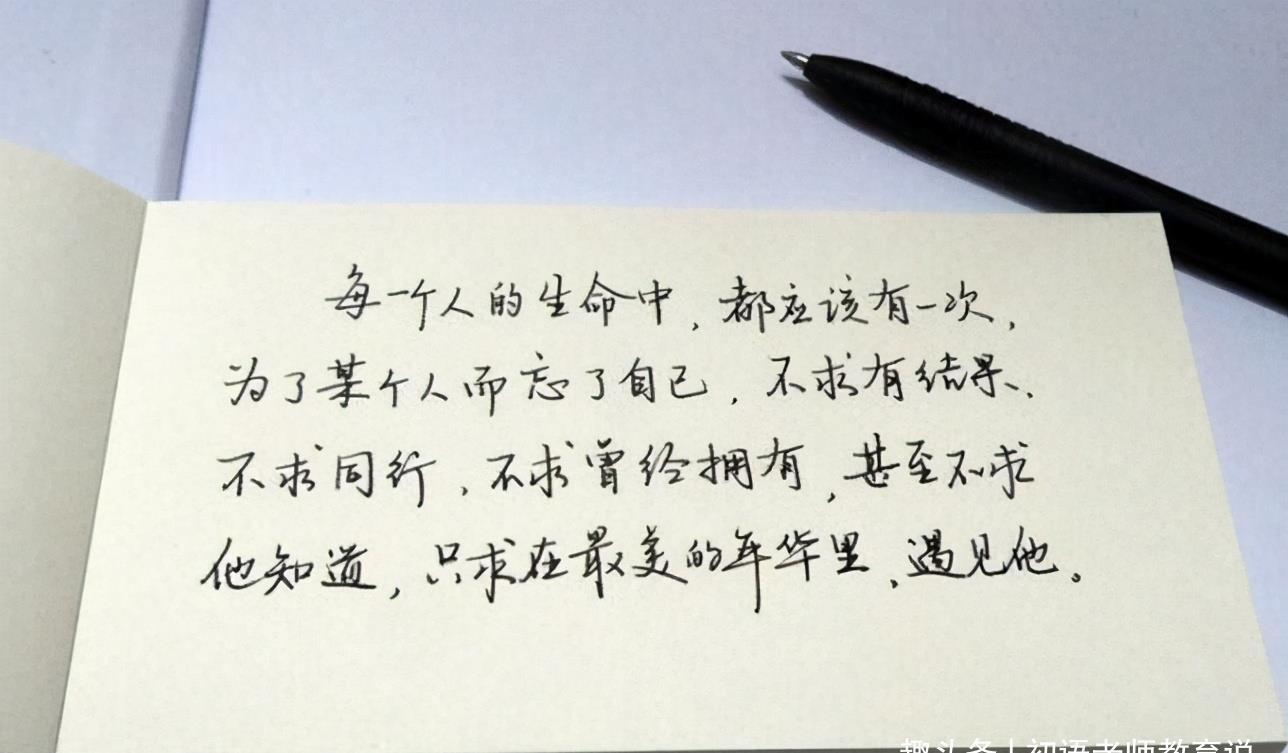 每一个人的生命中，都应该有一次，
为了某个人而忘了自己，不求有结果、
不求同行，不求曾经拥有，甚至不求
他知道，只求在最美的年华里，遇见他。
趣头条|初语老师教育说